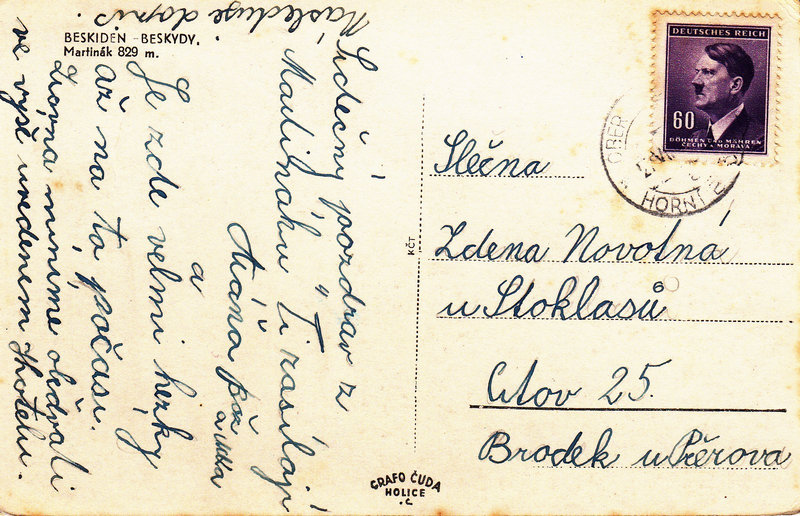 BESKIDEN - BESKYDY.
Martinák 829 m.
Srdečný pozdrav z
Martiňáku Ti zasílají
a
Je zde velmi hezky
až na to počasí.
Zrovna míníme obědvati
ve výše uvedeném Hotelu.
Následuje dopis.
KČT
GRAFO ČUDA
HOLICE
DEUTSCHES REICH
60
BÖHMEN und MÄHREN
ČECHY a MORAVA
OBER
HORNÍ BE
Slečna
Zdena Novotná
u Stoklasů
Citov 25.
Brodek u Přerova